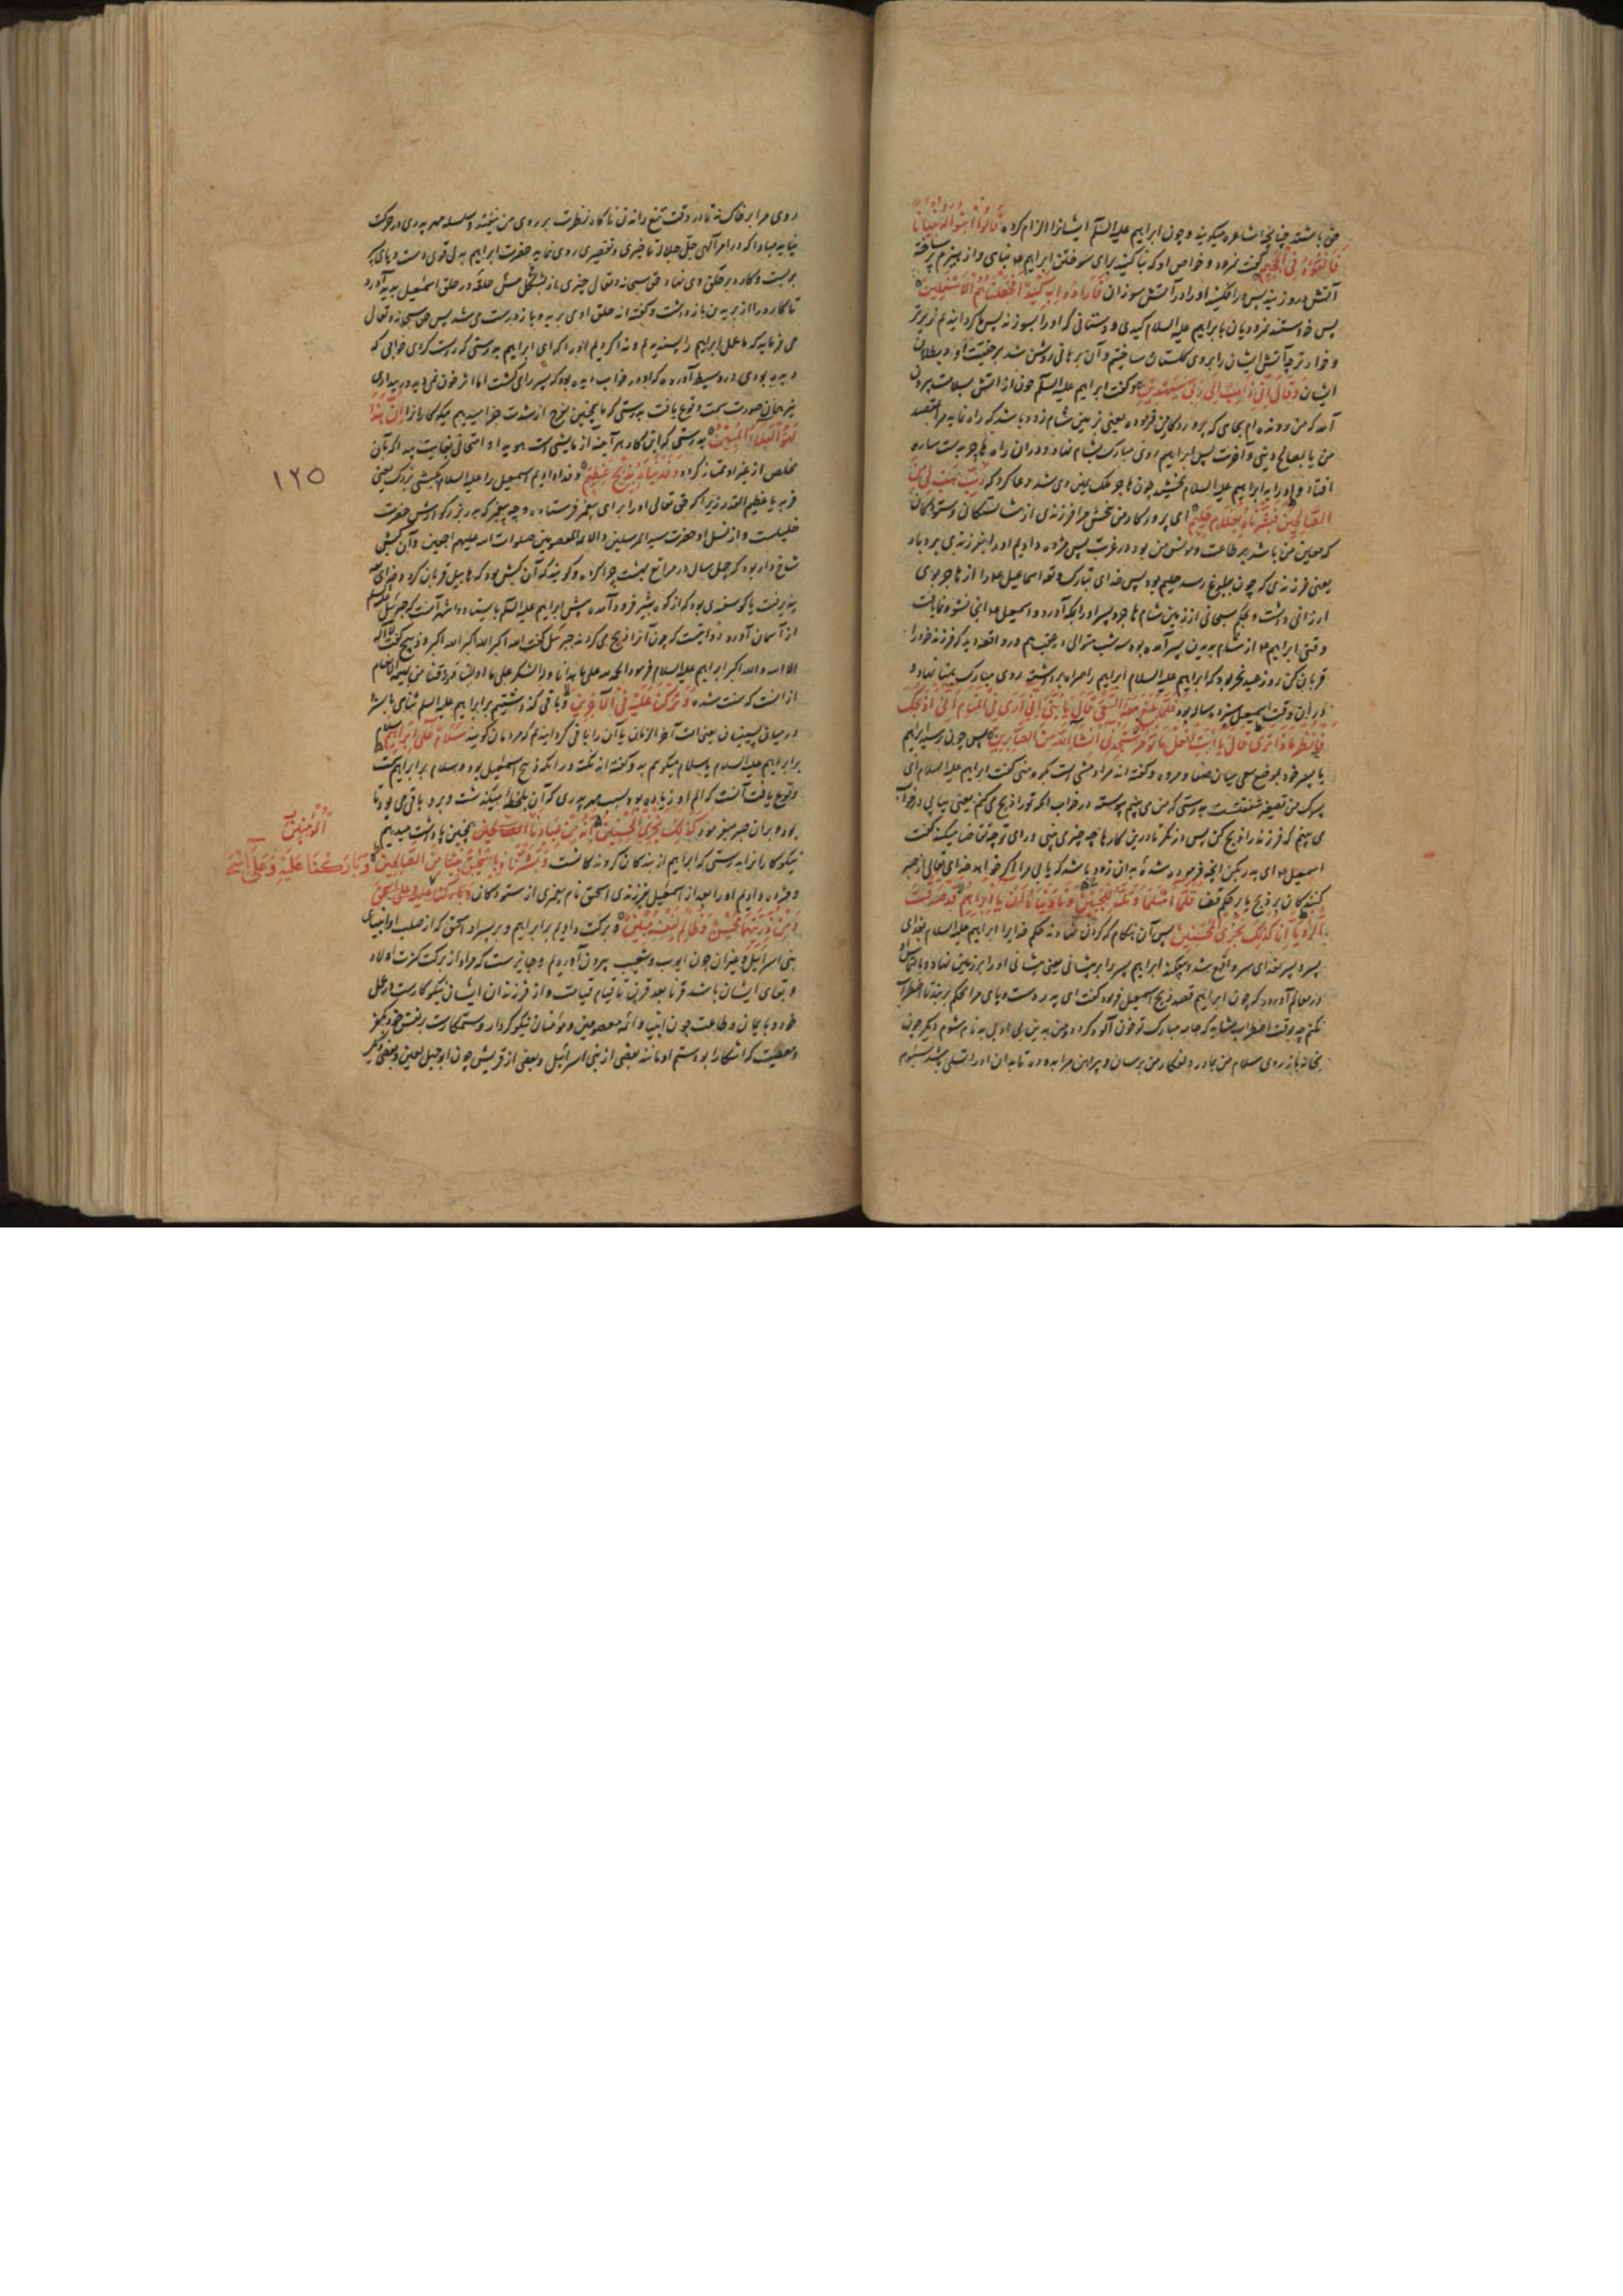 حق باشند چنانچه اشاعره میگویند و چون ابراهیم علیه السلام ایشانرا الزام کرد قالوا ابنوا له بنیانا
فالقوه فی الجحیم گفت نمرود و خواص او که بنا کنید برای سوختن ابراهیم بنیاسی و از هیزم پر ساخته
آتش در وزنید پس درافکنید او را در آتش سوزان فارادوا به کیدا فجعلناهم الاسفلین
پس خواستند نمرودیان با براهیم علیه السلام کیدی و دستانی که او را بسوزند پس ما گردانیدیم زیرتر
و خوارتر چه آتش ایشان را بروی گلستان ساختیم و آن برهانی روشن شد بر حقیقت او و بطلان
ایشان وقال انی ذاهب الی ربی سیهدین و گفت ابراهیم علیه السلام چون از آتش بسلامت بیرون
آمد که من رونده ام بجای که پروردگار من فرموده یعنی زمین شام زود باشد که راه نماید مرا بمقصد
من یا بمصالح دینی و آخرت پس ابراهیم روی مبارک بشام نهاد و در آن راه هاجر بدست ساره
افتاد و او را به ابراهیم علیه السلام بخشید چون هاجر ملک یمین وی شد دعا کرد که رب هب لی من
الصالحین فبشرناه بغلام حلیم ای پروردگار من ببخش مرا فرزندی از شایستگان و ستودگان
که معین من باشد بر طاعت و مونس من بود در غربت پس مژده دادیم او را بفرزندی بردبار
یعنی فرزندی که چون ببلوغ رسد حلیم بود پس خدای تبارک و تعالی اسماعیل را از هاجر بوی
ارزانی داشت و بحکم سبحانی از زمین شام هاجر و پسر او را بمکه آورد و اسمعیل آنجا نشو و نما یافت
وقتی ابراهیم از شام بدیدن پسر آمده بود سه شب متوالی در واقعه دید که فرزند خود را
قربان کن روز عید نحر بود که ابراهیم علیه السلام را همراه برداشته روی مبارک بمنا نهاد و
در آن وقت اسمعیل سیزده ساله بود فلما بلغ معه السعی قال یا بنی انی اری فی المنام انی اذبحک
فانظر ماذا تری قال یا ابت افعل ما تؤمر ستجدنی ان شاء الله من الصابرین پس چون برسید ابراهیم
با پسر خود بموضع سعی میان صفا و مروه و گفته اند مراد مشی است بکوه منی گفت ابراهیم علیه السلام ای
پسرک من تصغیر شفقتست بدرستی که من می بینم پیوسته در خواب آنکه تو را ذبح می کنم یعنی پیاپی در خواب
می بینم که فرزند را ذبح کن پس در نگر تا درین کارها چه چیزی بینی و رای تو چه تقاضا میکند گفت
اسمعیل ای پدر بکن آنچه فرموده شدهٔ بدان زود باشد که یابی مرا اگر خواهد خدای تعالی از صبر
کنندگان بر ذبح یا بر حکم قضا فلما اسلما وتله للجبین ونادیناه ان یا ابراهیم قد صدقت
الرؤیا انا کذلک نجزی المحسنین پس آن هنگام که گردن نهادند حکم خدا را ابراهیم علیه السلام بفدای
در معالم آورده که چون ابراهیم قصد ذبح اسمعیل فرمود گفت ای پدر دست و پای مرا محکم بربند تا اضطراب
نکنم چه وقت اضطراب شاید که جامه مبارک تو خون آلود گردد
بخانه باز روی سلام من بمادر دلفگار من برسان و پیراهن مرا بده تا بدان او را تسلی باشد سیوم
روی مرا بر خاک نه تا در وقت تیغ راندن ناگاه نظرت بر روی من نیفتد و سلسله مهر پدری در حرکت
نیاید مبادا که در امر الهی جل جلاله تاخیری و تقصیری روی نماید حضرت ابراهیم به دلی قوی دست و پای پسر
بربست و کارد بر حلق وی نهاد حق سبحانه و تعالی چیزی از مس حلقه در حلق اسمعیل پدید آورد
تا کارد را از بریدن باز داشت و گفته اند حلق او می برید و باز درست می شد پس حق سبحانه و تعالی
می فرماید که ما عمل ابراهیم را پسندیدیم و ندا کردیم او را که ای ابراهیم بدرستی که راست کردی خوابی که
دیده بودی در وسیط آورده که او در خواب دیده بود که پسر را می کشت اما اثر خون نمی دید در بیداری
نیز همان صورت سمت وقوع یافت بدرستی که ما همچنین فرج از شدت جزا میدهیم نیکوکاران را ان هذا
لهو البلاء المبین بدرستی که این کار هر آینه آزمایشی است هویدا و امتحانی بغایت پیدا که بآن
مخلص از غیر او ممتاز گردد وفدیناه بذبح عظیم و فدا دادیم اسمعیل را علیه السلام بکبشی بزرگ یعنی
فربه یا عظیم القدر زیرا که حق تعالی او را برای پیغمبر فرستاد و چه پیغمبر که پدر بزرگوارش حضرت
خلیلست و از نسل او حضرت سید المرسلین و الائمه المعصومین صلوات الله علیهم اجمعین و آن کبش
شاخ دار بود که چهل سال در مراتع بهشت چرا کرده و گویند که آن کبش بود که هابیل قربان کرد و خدای
پذیرفت یا گوسفندی بود که از کوه ثبیر فرود آمد و پیش ابراهیم علیه السلام بایستاد و اشهر آنست که جبرئیل
از آسمان آورد روایتست که چون آنرا ذبح می کردند جبرئیل گفت الله اکبر الله اکبر الله اکبر و ذبیح گفت لا اله
الا الله والله اکبر ابراهیم علیه السلام فرمود الحمد لله علی ما هدانا وله الشکر علی ما اولینا
از آنست که سنت شد وترکنا علیه فی الآخرین و باقی گذاشتیم بر ابراهیم علیه السلام ثنای
در میان پسینیان یعنی امت آخر الزمان یا آن را باقی گردانیدیم که مردمان گویند سلام علی ابراهیم سلام
بر ابراهیم علیه السلام یا سلام میگویم و گفته اند نکته در آنکه ذبح اسمعیل بود و سلام بر ابراهیم سمت
وقوع یافت آنست که الم او زیاده بود بسبب مهر پدری که آن بلحظهٔ میگذشت و برو باقی می بود تا
بود و بر آن صبر مینمود کذلک نجزی المحسنین انه من عبادنا المؤمنین همچنین پاداشت میدهیم
نیکوکاران را بدرستی که ابراهیم از بندگان گرونده ماست وبشرناه باسحق نبیا من الصالحین وبارکنا علیه وعلی اسحق
و مژده دادیم او را بعد از اسمعیل بفرزندی اسحق نام پیغمبری از ستودگان وبارکنا علیه وعلی اسحق
ومن ذریتهما محسن وظالم لنفسه مبین و برکت دادیم بر ابراهیم و بر پسر او اسحق که از صلب او انبیای
بنی اسرائیل و غیر آن چون ایوب و شعیب بیرون آوردیم و جایز است که مراد از برکت کثرت اولاد
و بقای ایشان باشد قرنا بعد قرن تا قیام قیامت و از فرزندان ایشان نیکوکارست در عمل
خود و بایمان و طاعت چون انبیا و ائمه معصومین و مؤمنان نیکو کردار و ستمکارست بر نفس خود بکفر
و معصیت که آشکارا بود ستم او مانند بعضی از بنی اسرائیل و بعضی از قریش چون ابوجهل لعین و بعضی دیگر
۱۲۵
المؤمنین